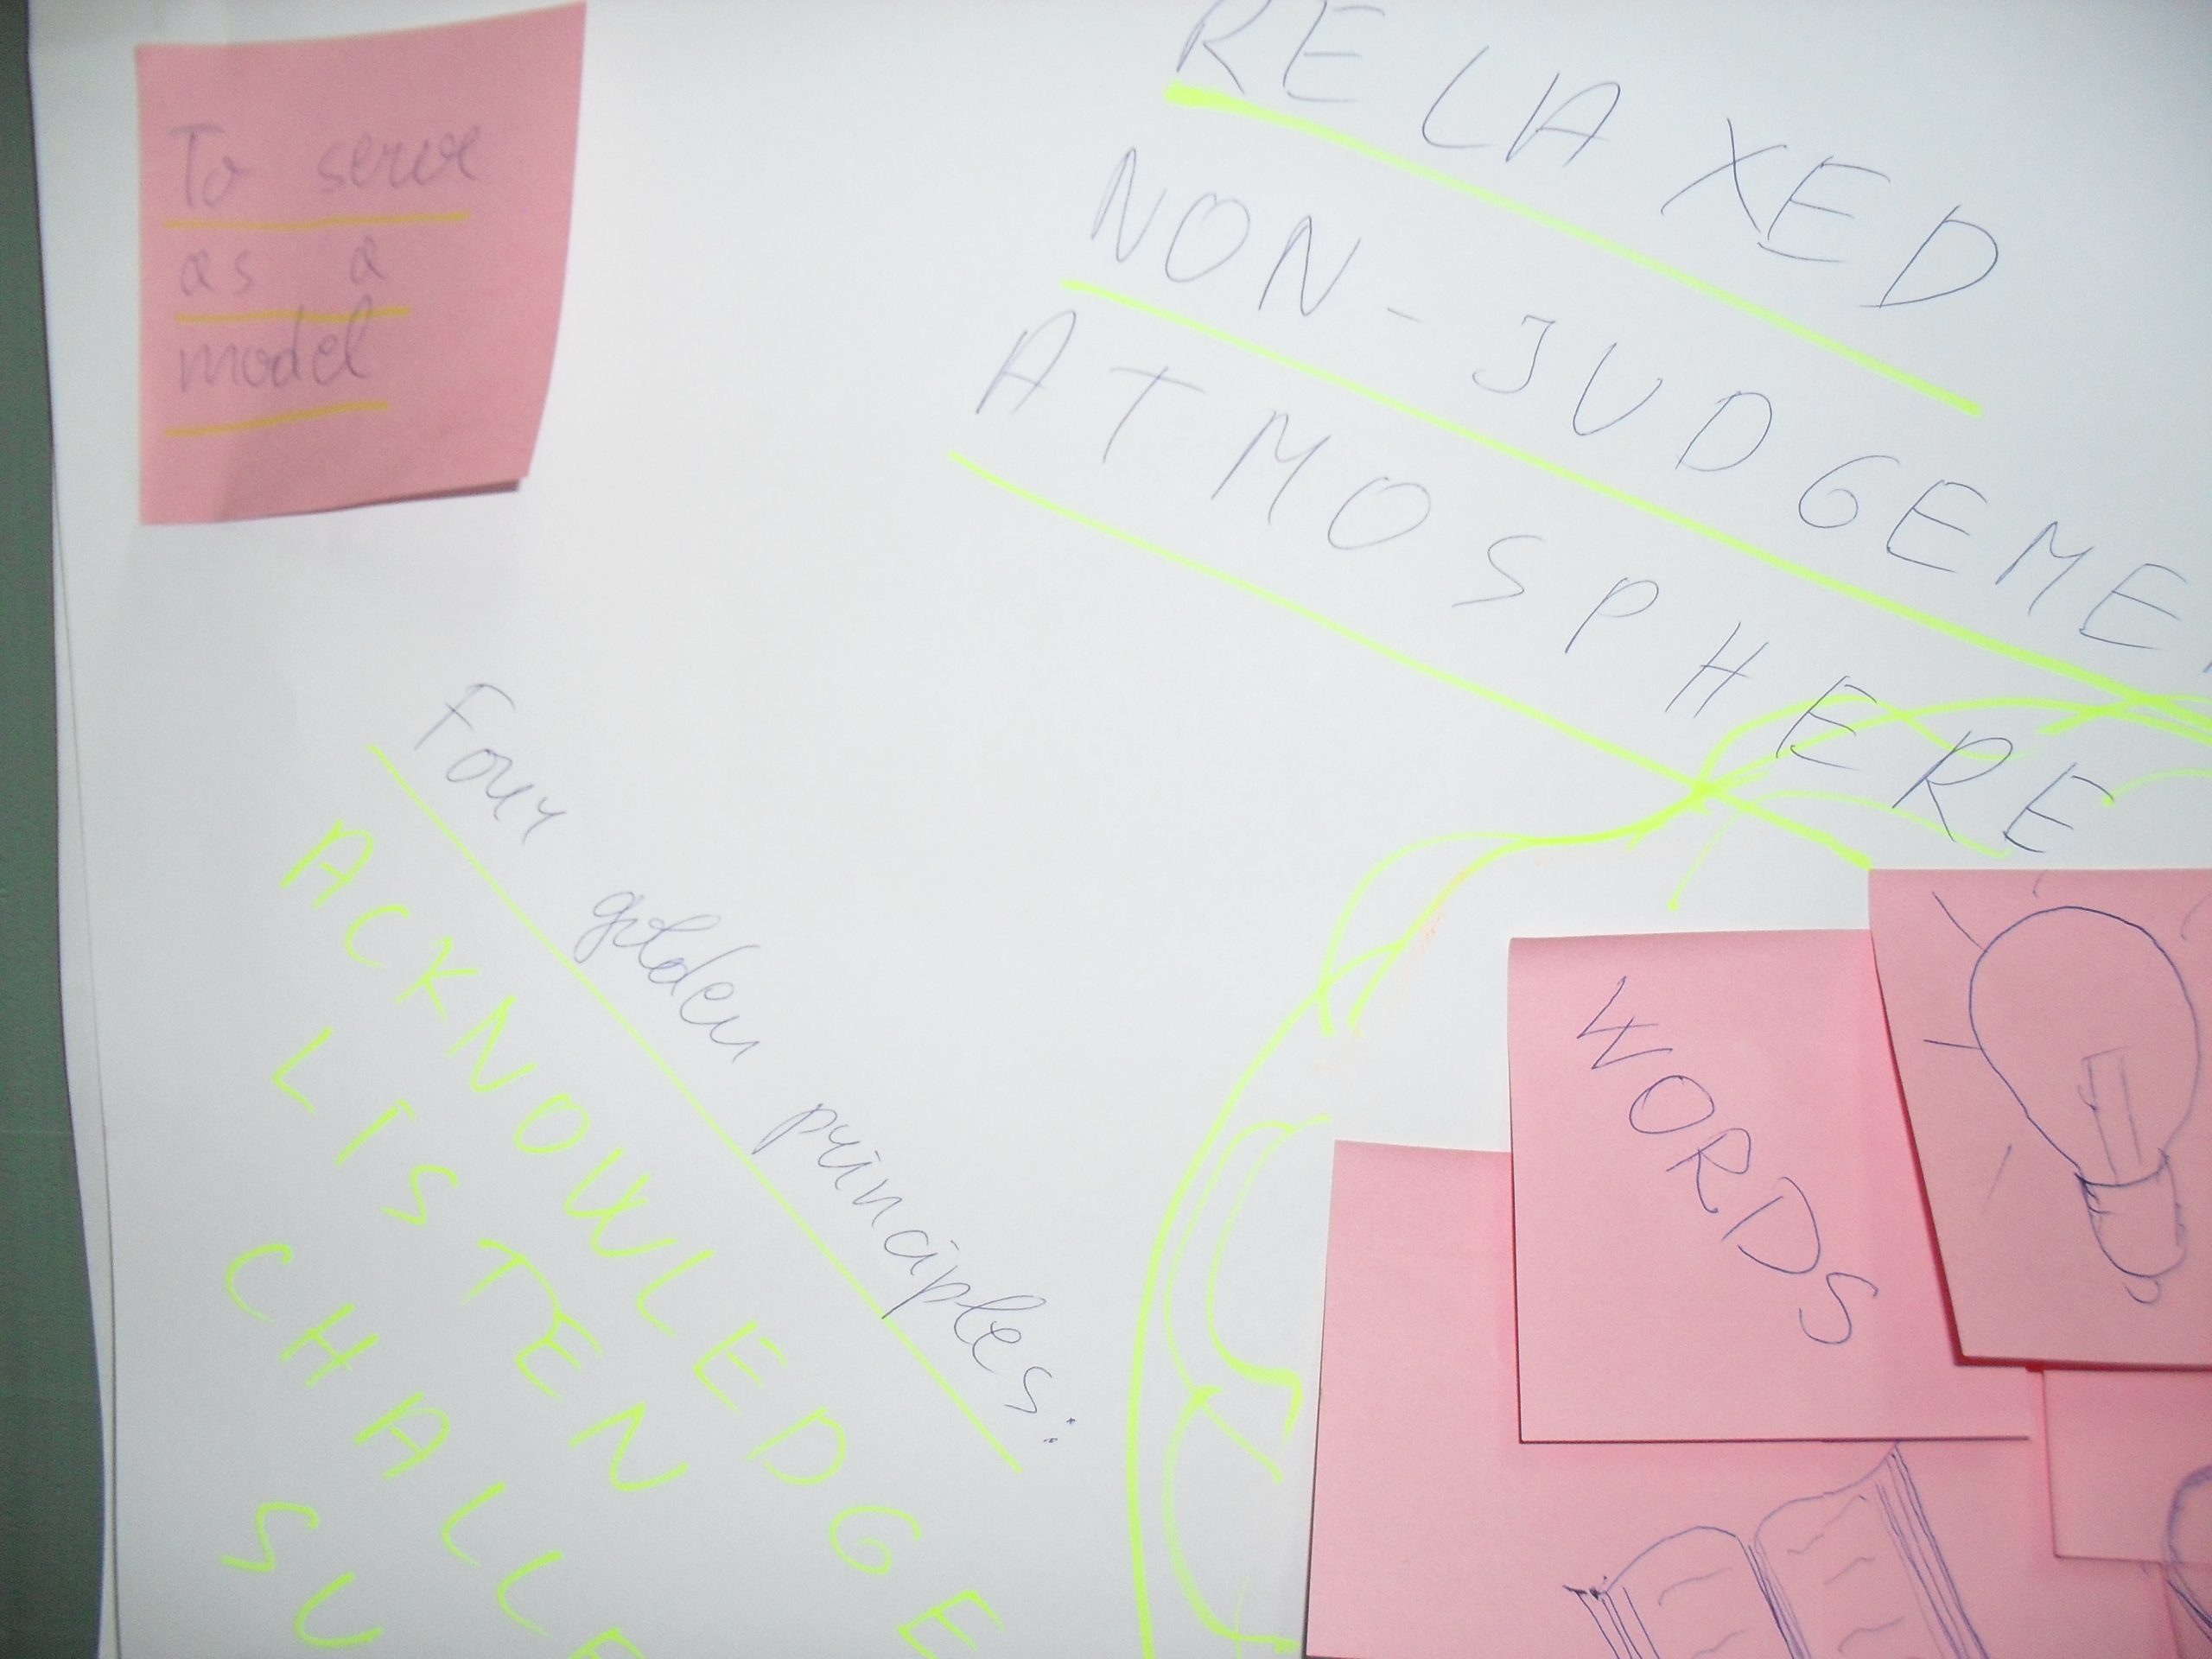 To serve
as a
model
RELAXED
NON-JUDGEME
ATMOSPHERE
Four golden principles:
ACKNOWLEDGE
LISTEN
CHALLE
SU
WORDS